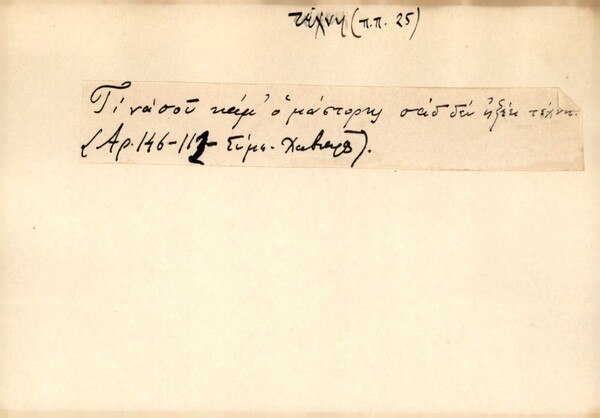 τέχνη (π.π. 25)
Τί νά σοῦ κάμ' ὁ μάστορης σάδ δέν ἠξέρ τέχνη.
(Αρ. 146-112- Σύμη- Χαβιαρᾶ).